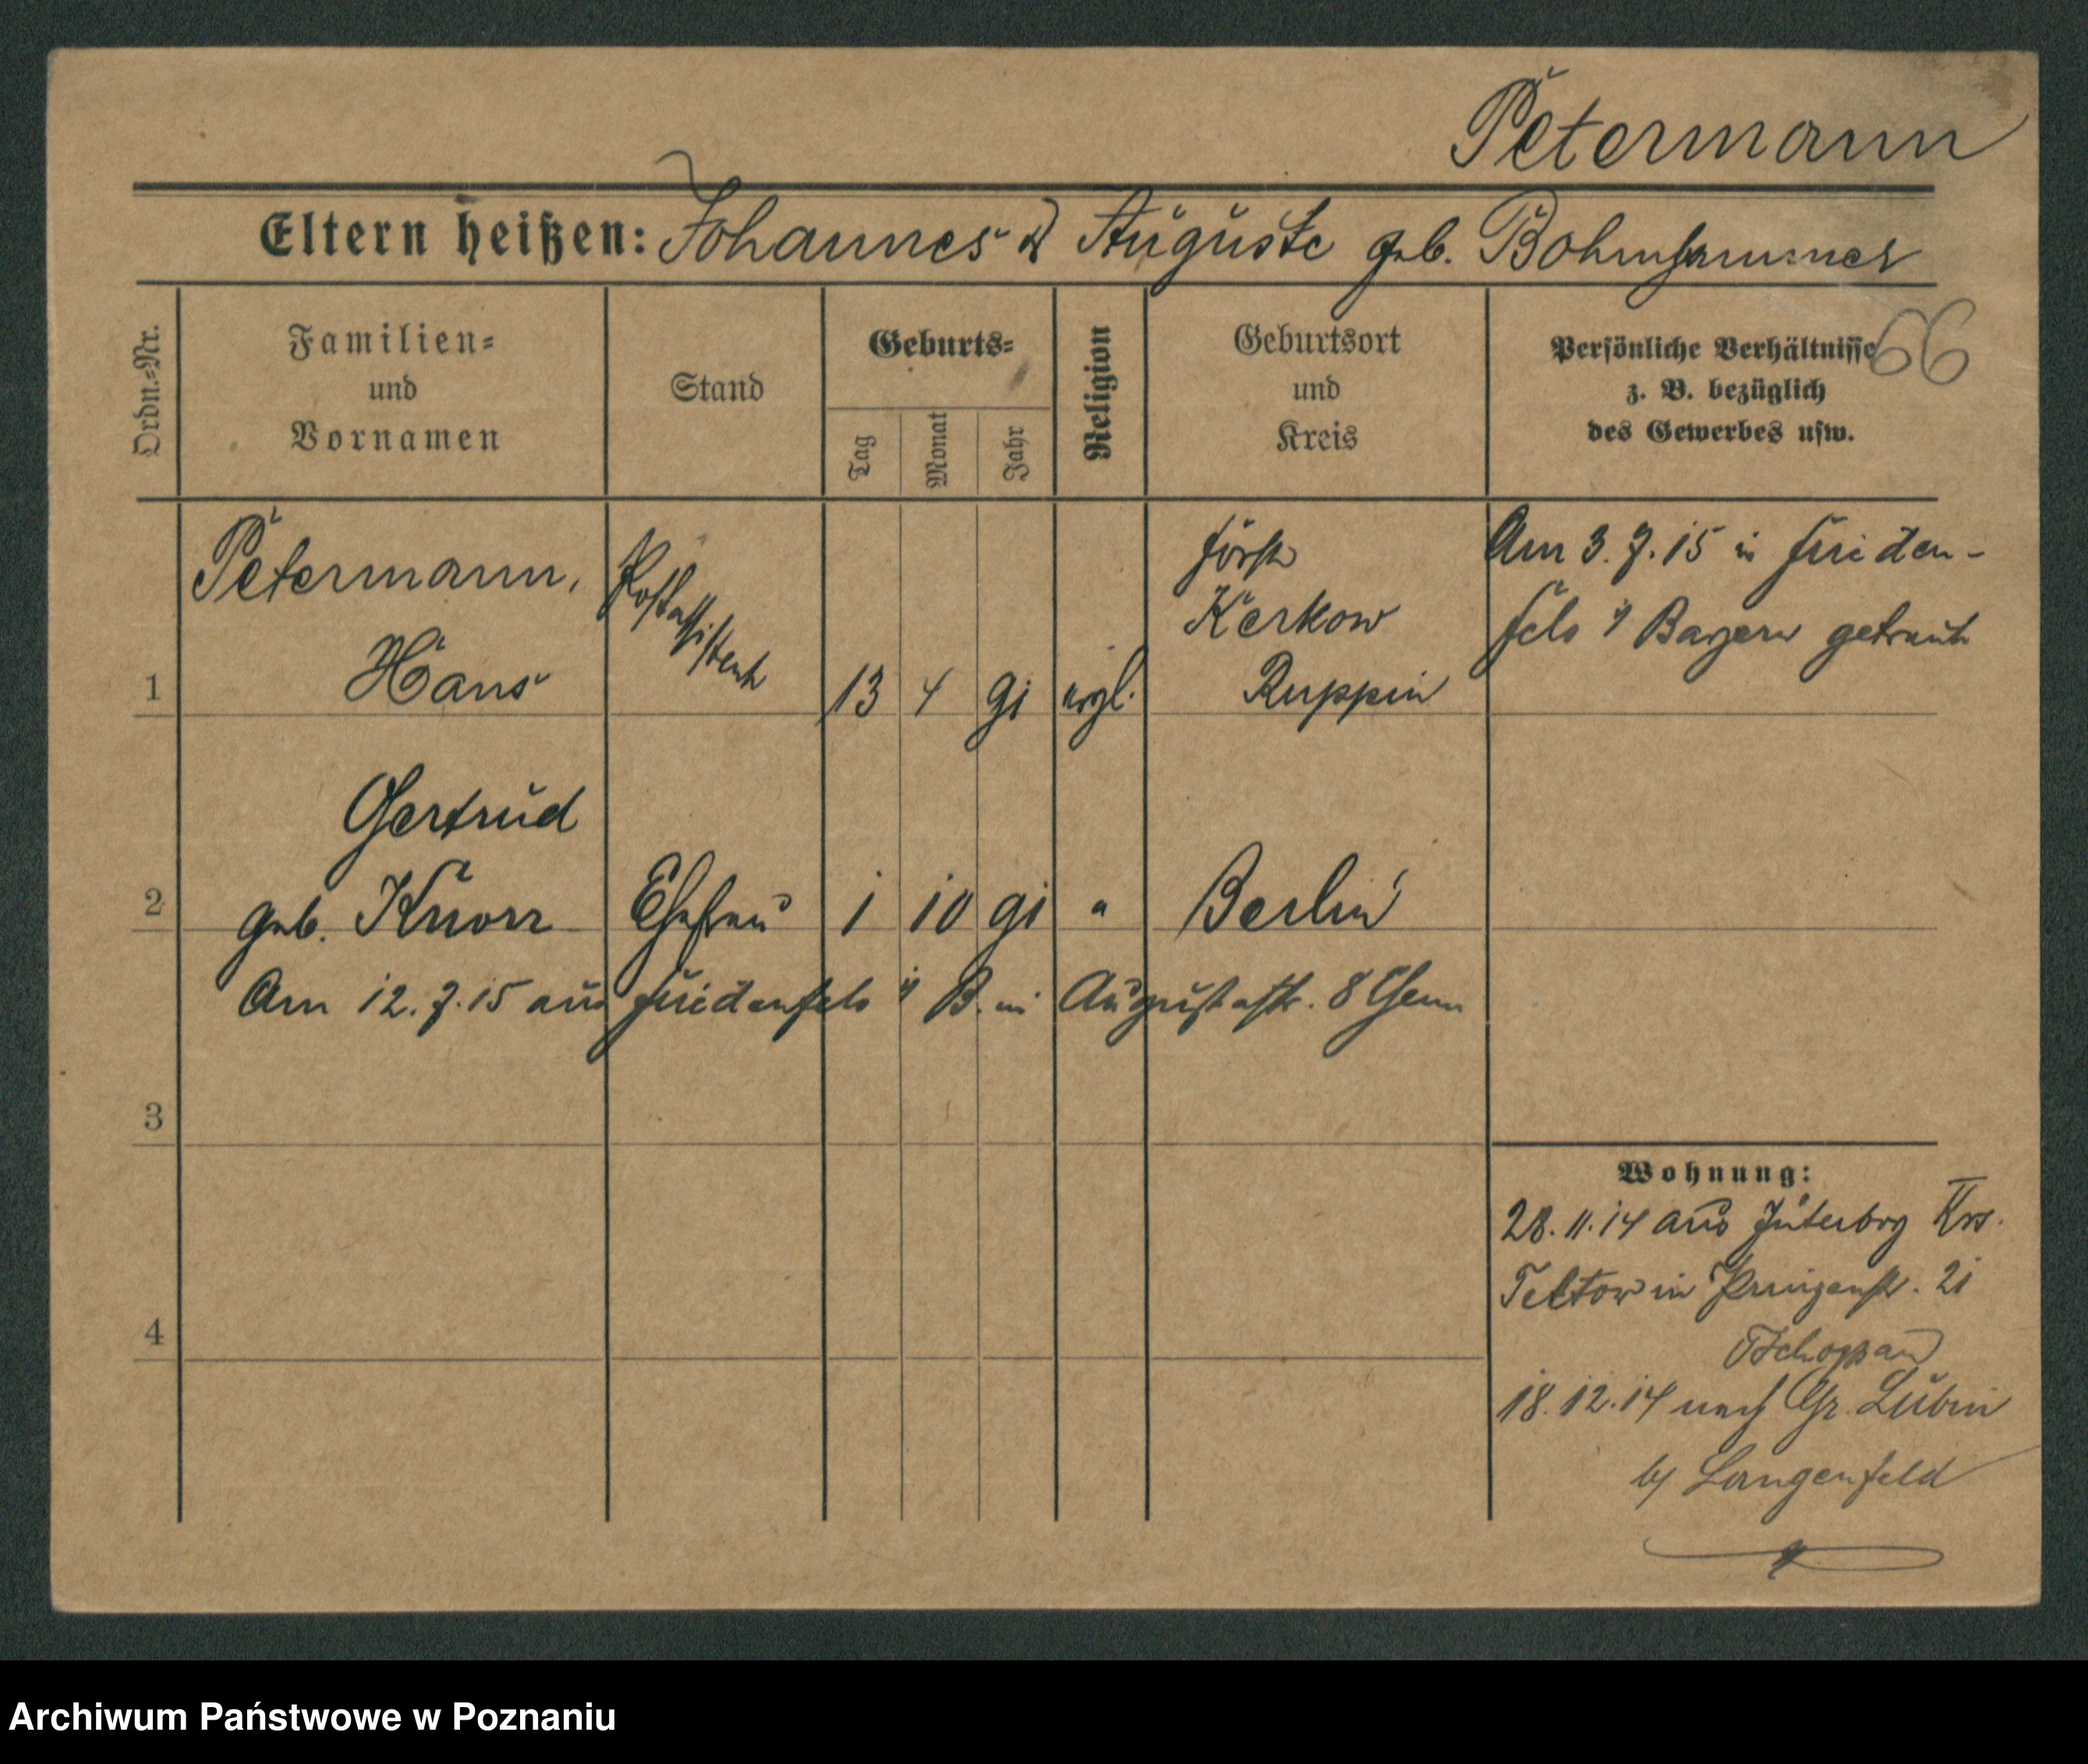 Petermann
Eltern heißen: Johannes & Auguste geb. Bohnhammer
66
Ordn.-Nr.
Familien-
und
Vornamen
Stand
Geburts-
Tag
Monat
Jahr
Religion
Geburtsort
und
Kreis
Persönliche Verhältnisse
z. B. bezüglich
des Gewerbes usw.
1
Petermann,
Hans
Postassistent
13 4 91
evgl.
Först
Kerkow
Ruppin
Am 3.7.15 in Frieden-
fels i/ Bayern getraut
2
Gertrud
geb. Knorr
Ehefrau
1 10 91
"
Berlin
Am 12.7.15 aus Friedenfels i/ B. in Augustastr. 8
3
4
Wohnung:
28.11.14 aus Jüterbog Krs.
Teltow in Prinzenstr. 21
18.12.14 nach Gr. Lubin
b/ Langenfeld
Archiwum Państwowe w Poznaniu